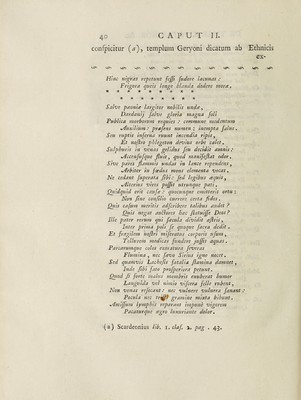 40 CAPUT II.
conspicitur (a), templum Geryoni dicatum ab Ethnicis
ex-
Hinc nigras repetunt fessi sudore lacunas:
Frigora queis longe blanda dedere mora.
* * * * * * * *
* * * * * * * *
Salve pæoniæ largitor nobilis undæ,
Dordanii salve gloria magna soli
Publica morborum requies: commune medentum
Auxilium: præsens numen; inempta salus.
Seu ruptis inferna ruunt incendia ripis,
Et nostro phlegeton devius orbe calet.
Sulphuris in venas gelidus seu decidit amnis:
Accensusque fluit, quod manifestat odor.
Sive pari flammis undas in lance rependens,
Arbiter in fœdus mens elementa vocat.
Ne cedant superata sibi: sed legibus æquis,
Alterius vires possit utrumque pati.
Quidquid erit causæ: quocunque emitteris ortu:
Non sine consiliis currere certa fides.
Quis casum meritis adscribere talibus audet?
Quis negat auctores hæc statuisse Deos?
Ille pater rerum qui sæcula dividit astris,
Inter prima poli te quoque sacra dedit.
Et fragilem nostri miseratus corporis usum,
Tellurem medicas fundere jussit aquas.
Parcarumque colos exoratura severas
Flumina, nec sævo Sirius igne nocet.
Sed quamvis Lachesis fatalia stamina damnet,
Inde sibi fato prosperiore petunt.
Quod si forte malus membris exuberat humor
Languida vel nimio viscera felle rubent,
Non venas reserant: nec vulnere vulnera sanant:
Pocula nec tristi gramine mixta bibunt.
Amissum lymphis reparant impune vigorem
Pacaturque ægro luxuriante dolor.
(a) Scardeonius lib. 1. clas. 2. pag. 43.